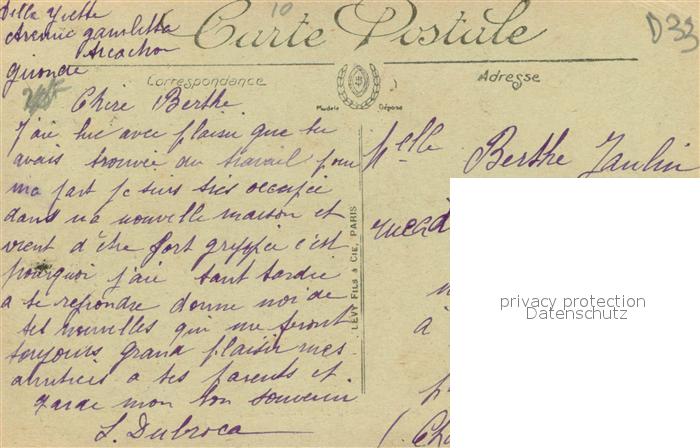 Villa Yvette
Avenue gambetta
Arcachon
gironde
10
D33
Carte Postale
Correspondance
Adresse
Modèle Déposé
Chère Berthe
J'aie lue avec plaisir que tu
avais trouvée du travail pour
ma part je suis très occupée
dans ma nouvelle maison et
vient d'être fort grippée c'est
pourquoi j'aie tant tardée
a te repondre donne moi de
tes nouvelles qui me feront
toujours grand plaisir mes
amitiées a tes parents et
garde mon bon souvenir
L. Dubroca
LÉVY FILS & CIE, PARIS
Melle Berthe Jaulin
rue
à
privacy protection
Datenschutz